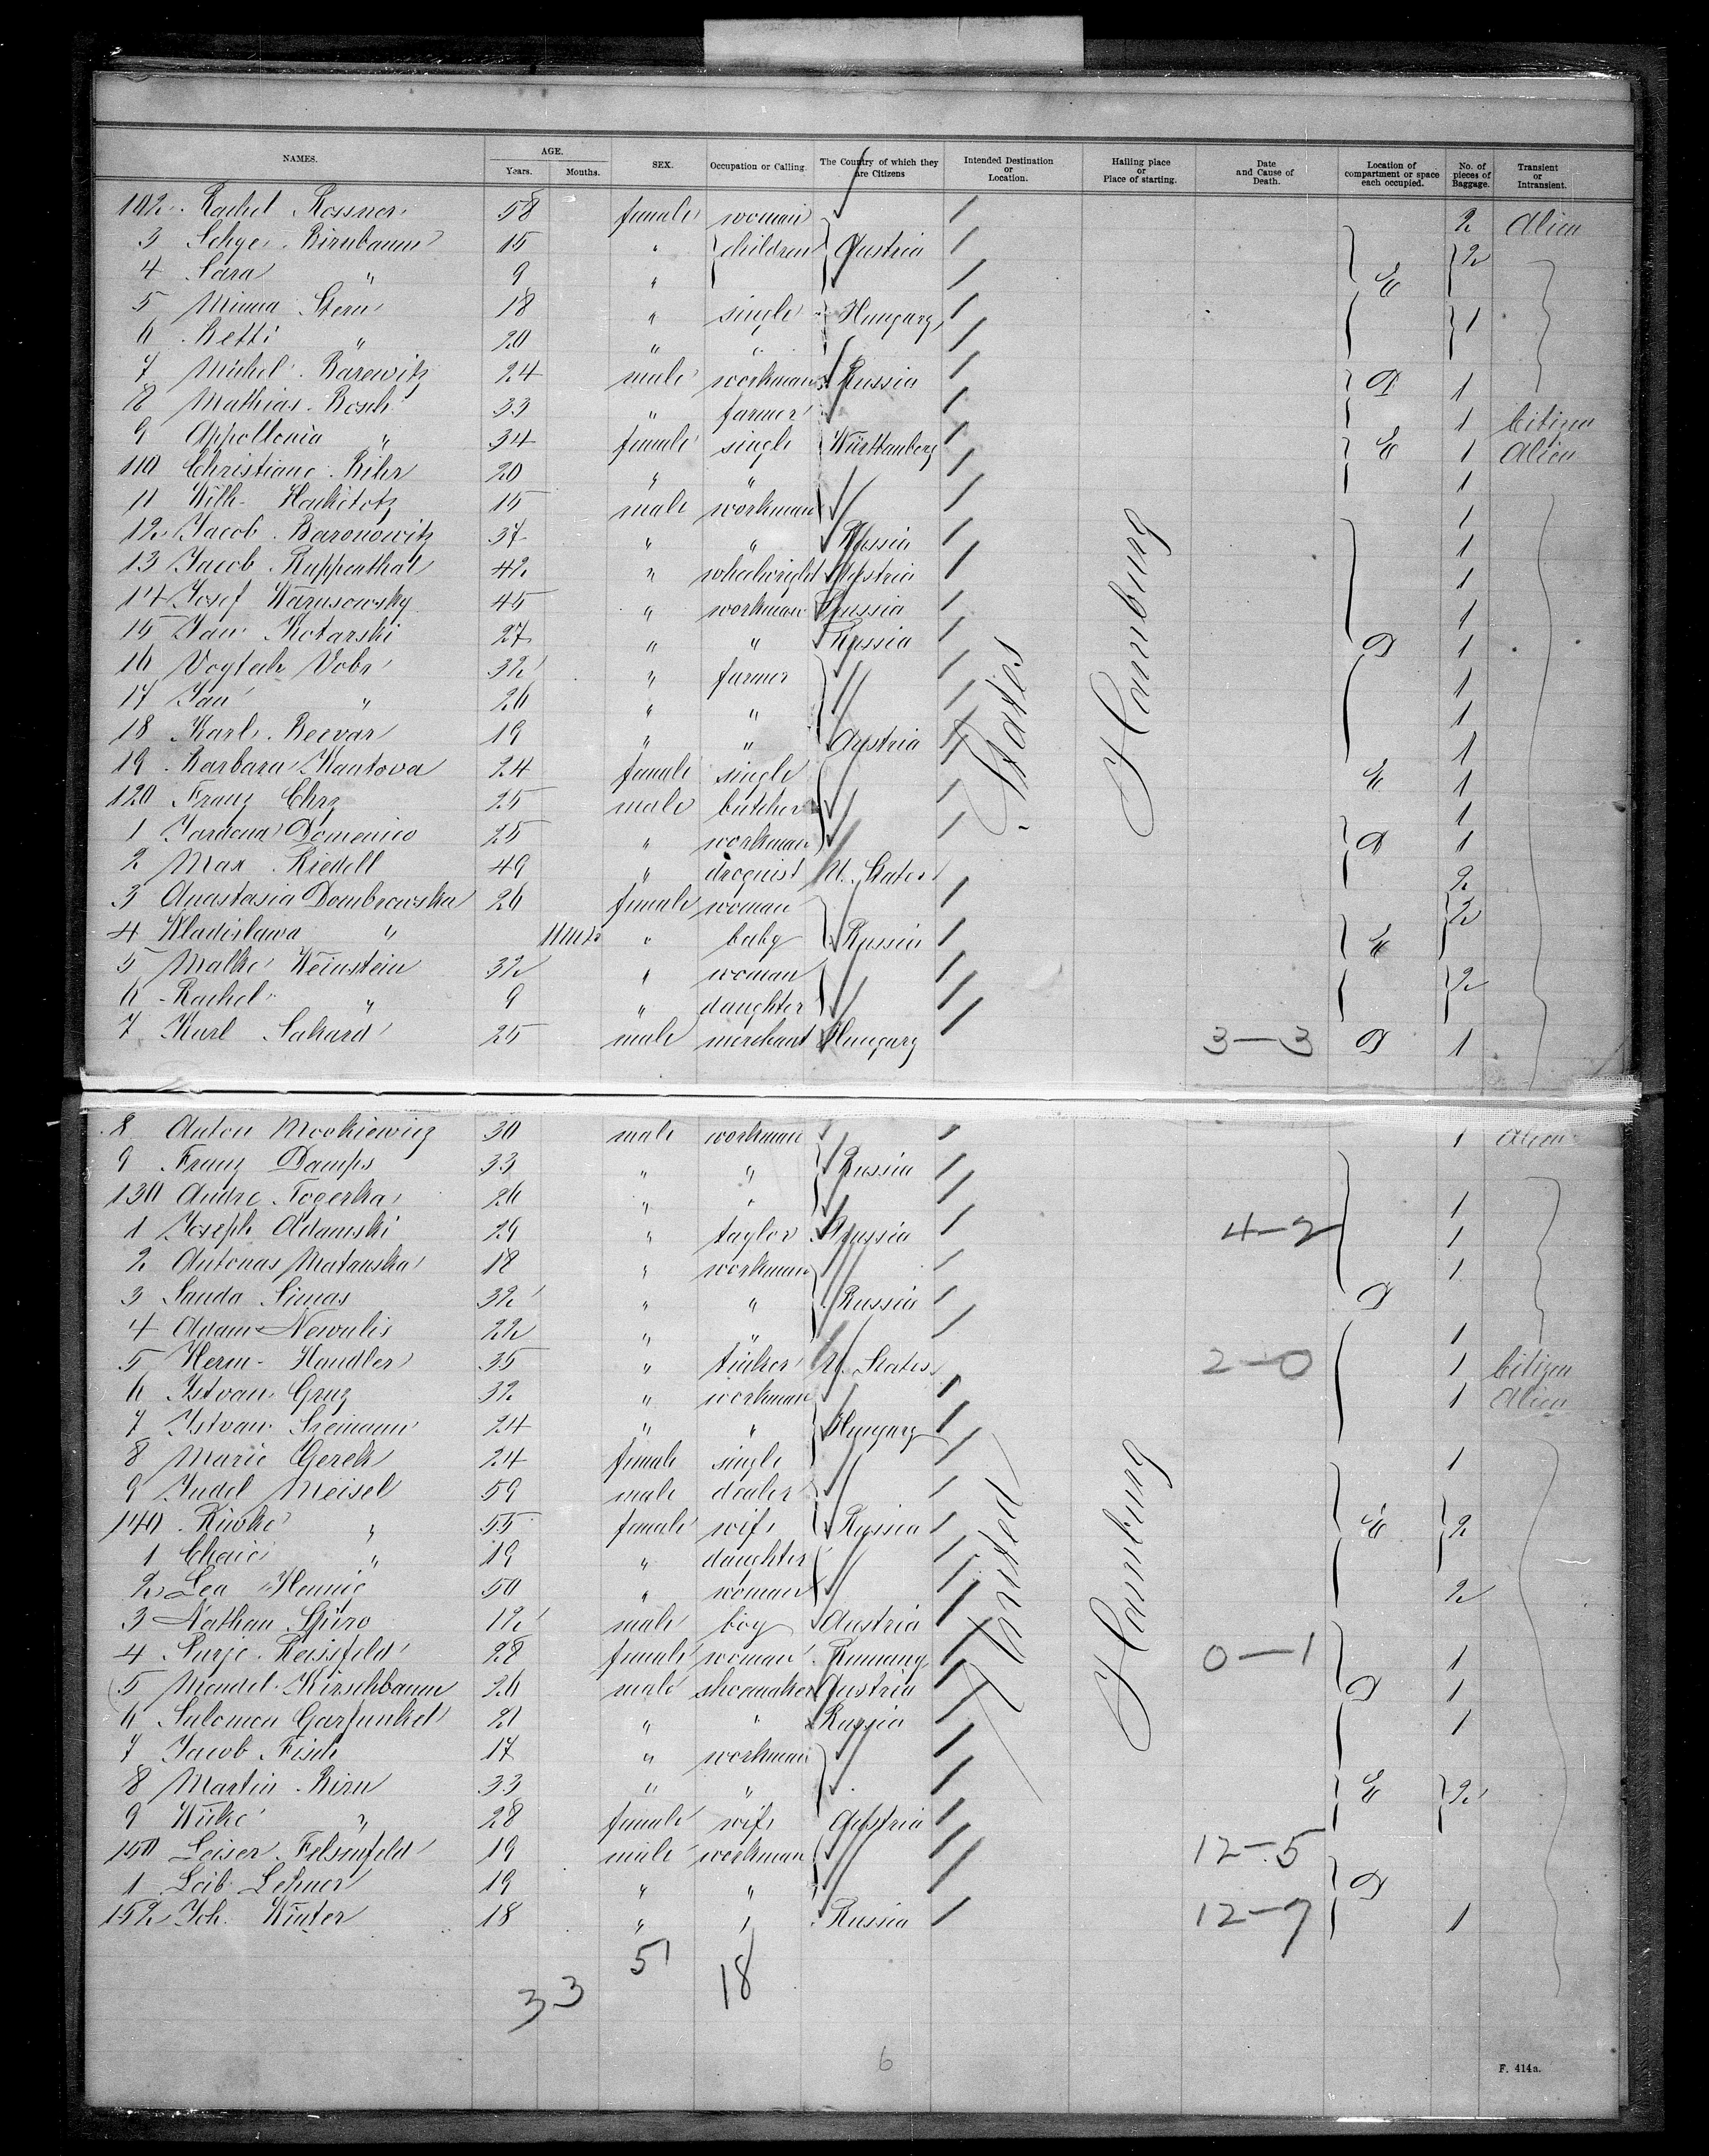 NAMES. AGE. Years. Months. SEX. Occupation or Calling. The Country of which they are Citizens Intended Destination or Location. Hailing place or Place of starting. Date and Cause of Death. Location of compartment or space each occupied. No. of pieces of Baggage. Transient or Intransient.
102 Rachel Rossner 58 female woman 2 Alien
3 Birnbaum 15 " children Austria 2
4 Sara " 9 " E
5 Minna Stern 18 " single Hungary 1
6 Betti " 20 " "
7 Michel Barewitz 24 male workman Russia D 1
8 Mathias Bosch 33 " farmer 1 Citizen
9 Appollonia " 34 female single Württemberg E 1 Alien
110 Christiane 20 " " 1
11 Wilh. 15 male workman 1
12 Jacob Baronowitz 37 " " Russia 1
13 Jacob Ruppenthal 42 " wheelwright Austria 1
14 Josef Warusowsky 45 " workman Russia 1
15 Jan Kotarski 27 " " Russia D 1
16 Vogtech Vobr 32 " farmer 1
17 Jan " 26 " " 1
18 Karl Becvar 19 " " Austria 1
19 Barbara Kantova 24 female single E 1
120 Franz Chrz 25 male butcher 1
1 Domenico 25 " workman D 1
2 Max Riedell 49 " droguist U. States 2
3 Anastasia Dombrowska 26 female woman 2
4 Wladislawa " 11 " baby Russia E
5 Malke Weinstein 32 " woman 2
6 Rachel " 9 " daughter
7 Karl Sakard 25 male merchant Hungary 3-3 D 1
States
Hamburg
8 Anton Mockiewicz 30 male workman 1 Alien
9 Franz Damps 33 " " Russia
130 Andre Togerka 26 " " 1
1 Joseph Adamski 29 " taylor Russia 4-2 1
2 Antonas Matauska 18 " workman 1
3 Sauda Simas 32 " " Russia D
4 Adam Newulis 22 " " 1
5 Herm. Handler 35 " tinker U. States 2-0 1 Citizen
6 Istvan Gruz 32 " workman 1 Alien
7 Istvan 24 " " Hungary
8 Marie Gerek 24 female single 1
9 Judel Meisel 59 male dealer
140 Riwke " 55 female wife Russia E 2
1 Chaie " 19 " daughter
2 Lea Hennig 50 " woman 2
3 Nathan Spiro 12 male boy Austria
4 Surje Reissfeld 28 female woman 0-1 1
5 Mendel Kirschbaum 26 male shoemaker Austria D 1
6 Salomon Garfunkel 21 " " Russia 1
7 Jacob Fisch 17 " workman
8 Martin Birn 33 " " E 2
9 " 28 female wife Austria
150 Leiser Felsenfeld 19 male workman 12-5
1 Leib Lehner 19 " " D
152 Joh. Winter 18 " " Russia 12-7 1
United
Hamburg
51
33 18
6
F. 414a.